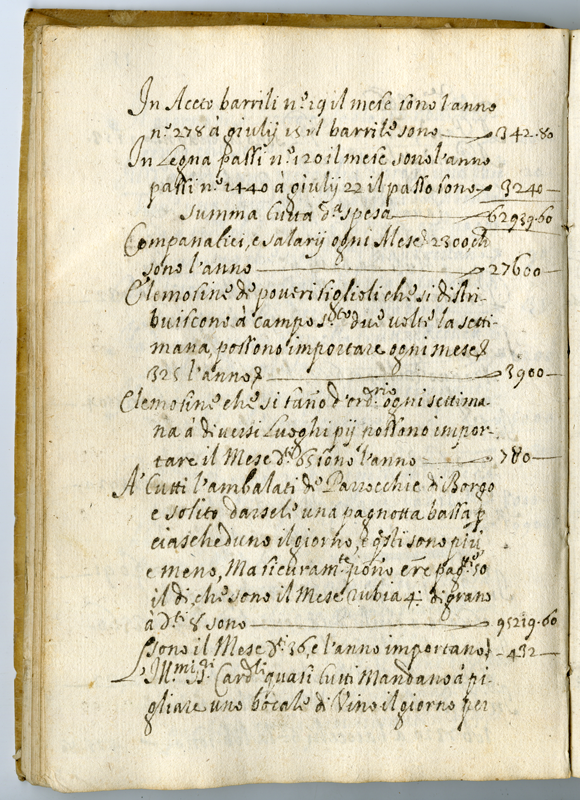 In Aceto barrili n.º 19 il mese sono l'anno
n.º 278 à giulij 15 il barrile sono 342.80
In Legna passi n.º 120 il mese sono l'anno
passi n.º 1440 à giulij 22 il passo sono 3240
summa tutta d.ª spesa 62939.60
Companatici, e salarij ogni Mese 2300
sono l'anno 27600
Elemosine de poveri figlioli che si distri-
buiscono à campo s.to due volte la setti-
mana, possono importare ogni mese
325 l'anno 3900
Elemosine che si fanno d'ord.rio ogni settima-
na à diversi Luoghi pij possono impor-
tare il Mese 65 sono l'anno 780
A' tutti l'ambalati de Parrocchie di Borgo
e solito darsele una pagnotta bassa p
ciascheduno il giorno, e q̃sti sono più
e meno, Ma sicuram.te poño ẽre pag.te 50
il di, che sono il Mese Rubia 4. di grano
à 8 sono 95219.60
sono il Mese 36, e l'anno importano 432
L'Ill.mi SS.ri Card.li quasi tutti Mandano à pi-
gliare uno bocale di Vino il giorno per